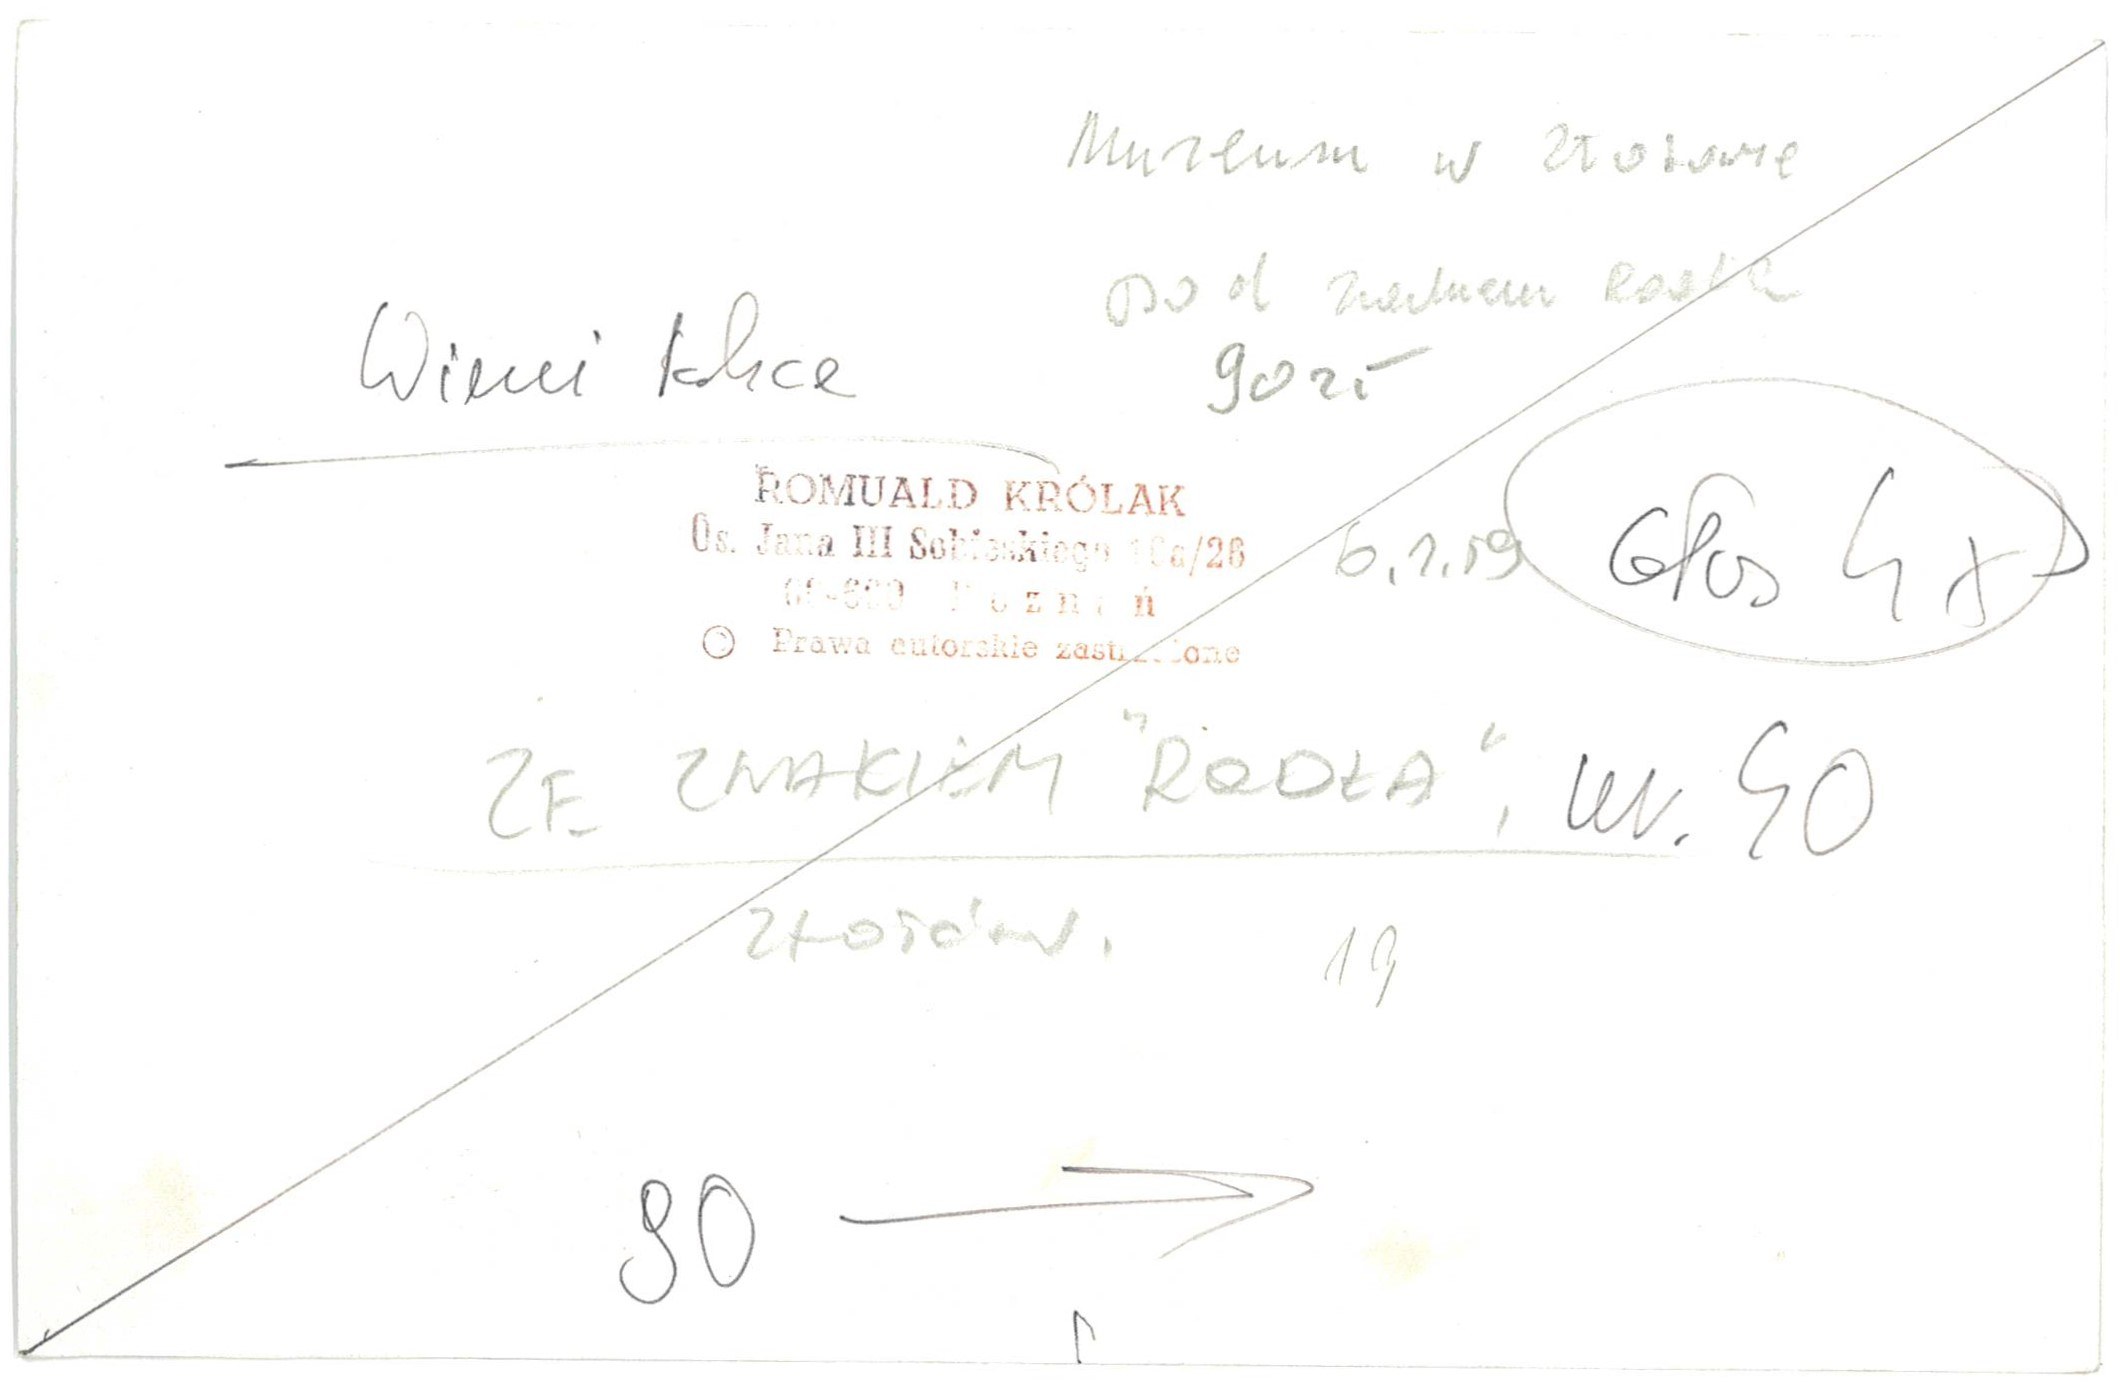 Muzeum w Złotowie
pod znakiem Rodła
90 zł
ROMUALD KRÓLAK
Os. Jana III Sobieskiego /26
Poznań
© Prawa autorskie zastrzeżone
Głos 4
ZE ZNAKIEM "RODŁA", nr. 40
Złotów.
19
90